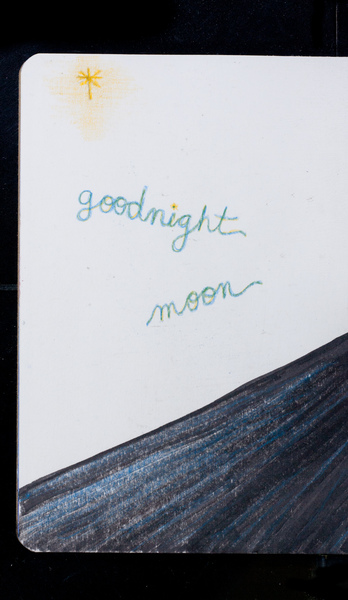 goodnight
moon